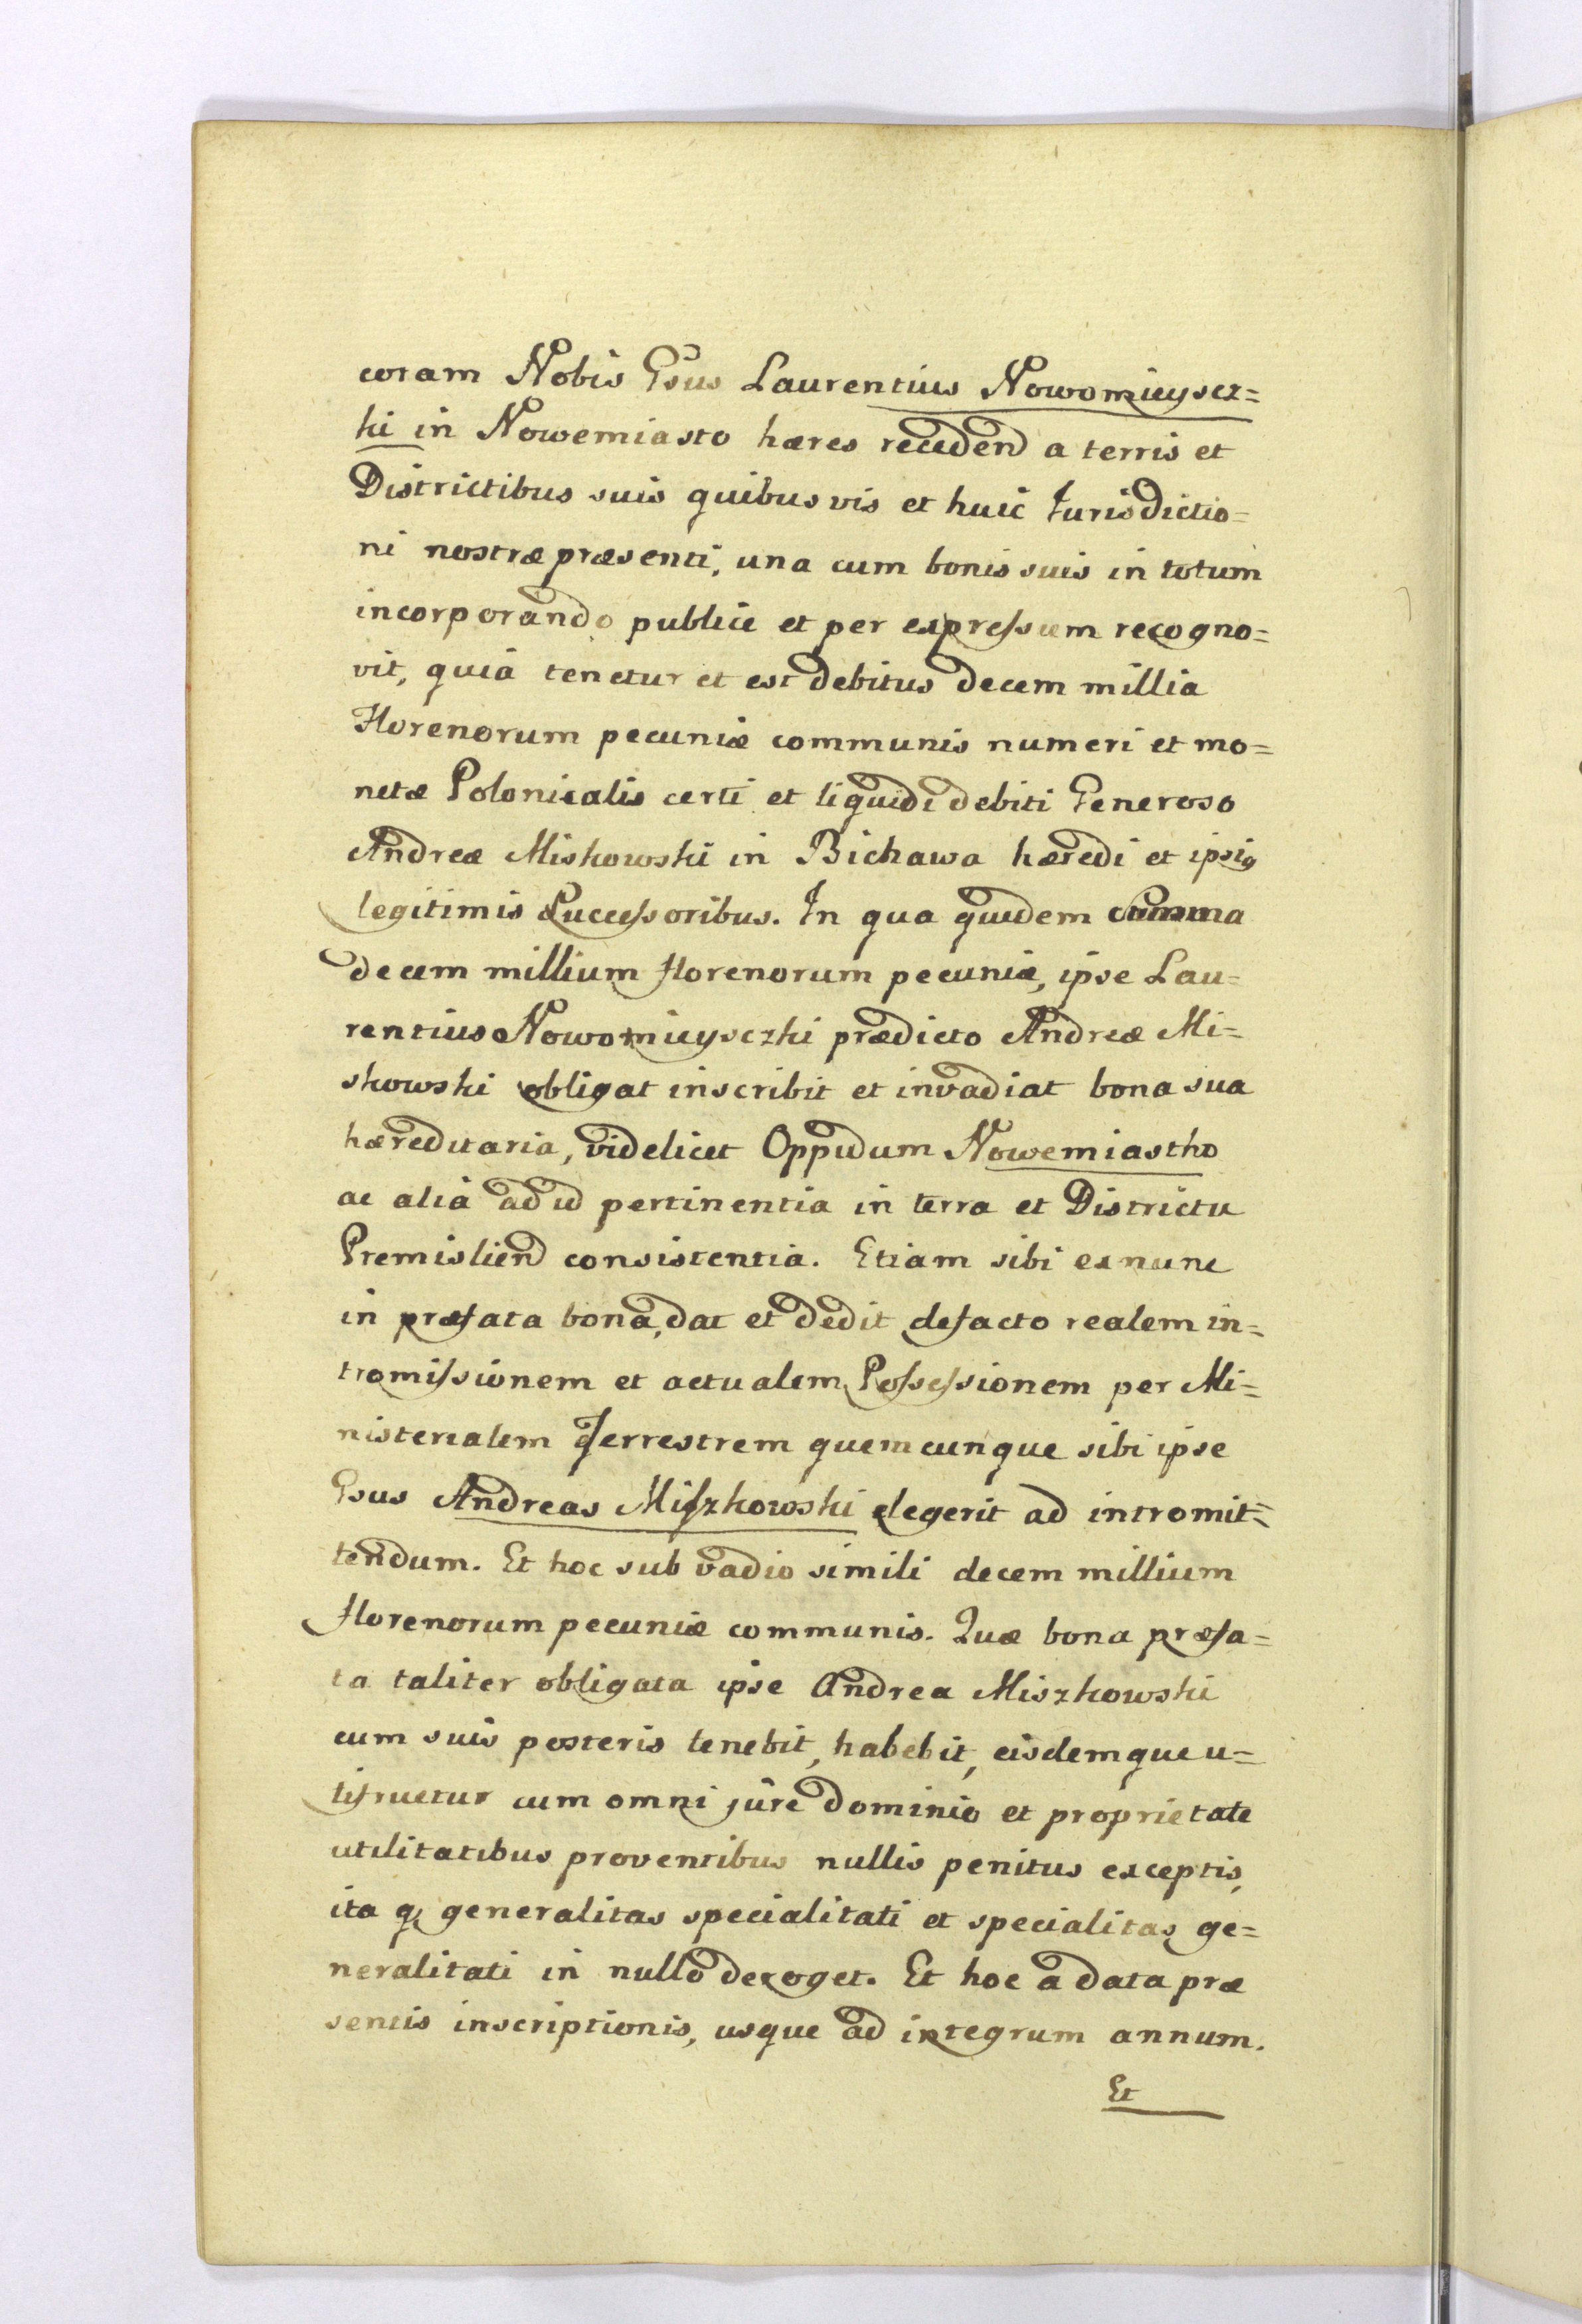 coram Nobis Gsus Laurentius Nowomieyscz=
ki in Nowemiasto hæres recedend a terris et
Districtibus suis quibusvis et huic Jurisdictio=
ni nostræ præsenti, una cum bonis suis in totum
incorporando publice et per expressum recogno=
vit, quia tenetur et est debitus decem millia
Florenorum pecuniæ communis numeri et mo=
netæ Polonicalis certi et liquidi debiti Generoso
Andreæ Miskowski in Bichawa hæredi et ipsi9
legitimis Successoribus. In qua quidem Summa
decem millium florenorum pecuniæ, ipse Lau=
rentius Nowomieysczki prædicto Andreæ Mi=
skowski obligat inscribit et invadiat bona sua
hæreditaria, videlicet Oppidum Nowemiastho
ac alia ad id pertinentia in terra et Districtu
Premisliend consistentia. Etiam sibi ex nunc
in præfata bona, dat et dedit defacto realem in=
tromissionem et actualem Possessionem per Mi=
nisterialem Terrestrem quemcunque sibi ipse
Gsus Andreas Miszkowski elegerit ad intromit=
tendum. Et hoc sub vadio simili decem millium
florenorum pecuniæ communis. Quæ bona præfa=
ta taliter obligata ipse Andrea Miszkowski
cum suis posteris tenebit, habebit, eisdemque u=
tifruetur cum omni jure dominio et proprietate
utilitatibus proventibus nullis penitus exceptis,
ita q generalitas specialitati et specialitas ge=
neralitati in nullo deroget. Et hoc a data præ
sentis inscriptionis, usque ad integrum annum.
Et